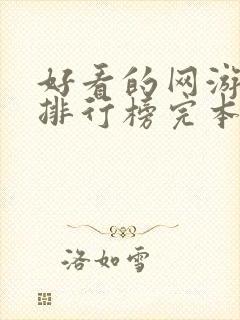 好看的网游
排行榜完本
洛如雪